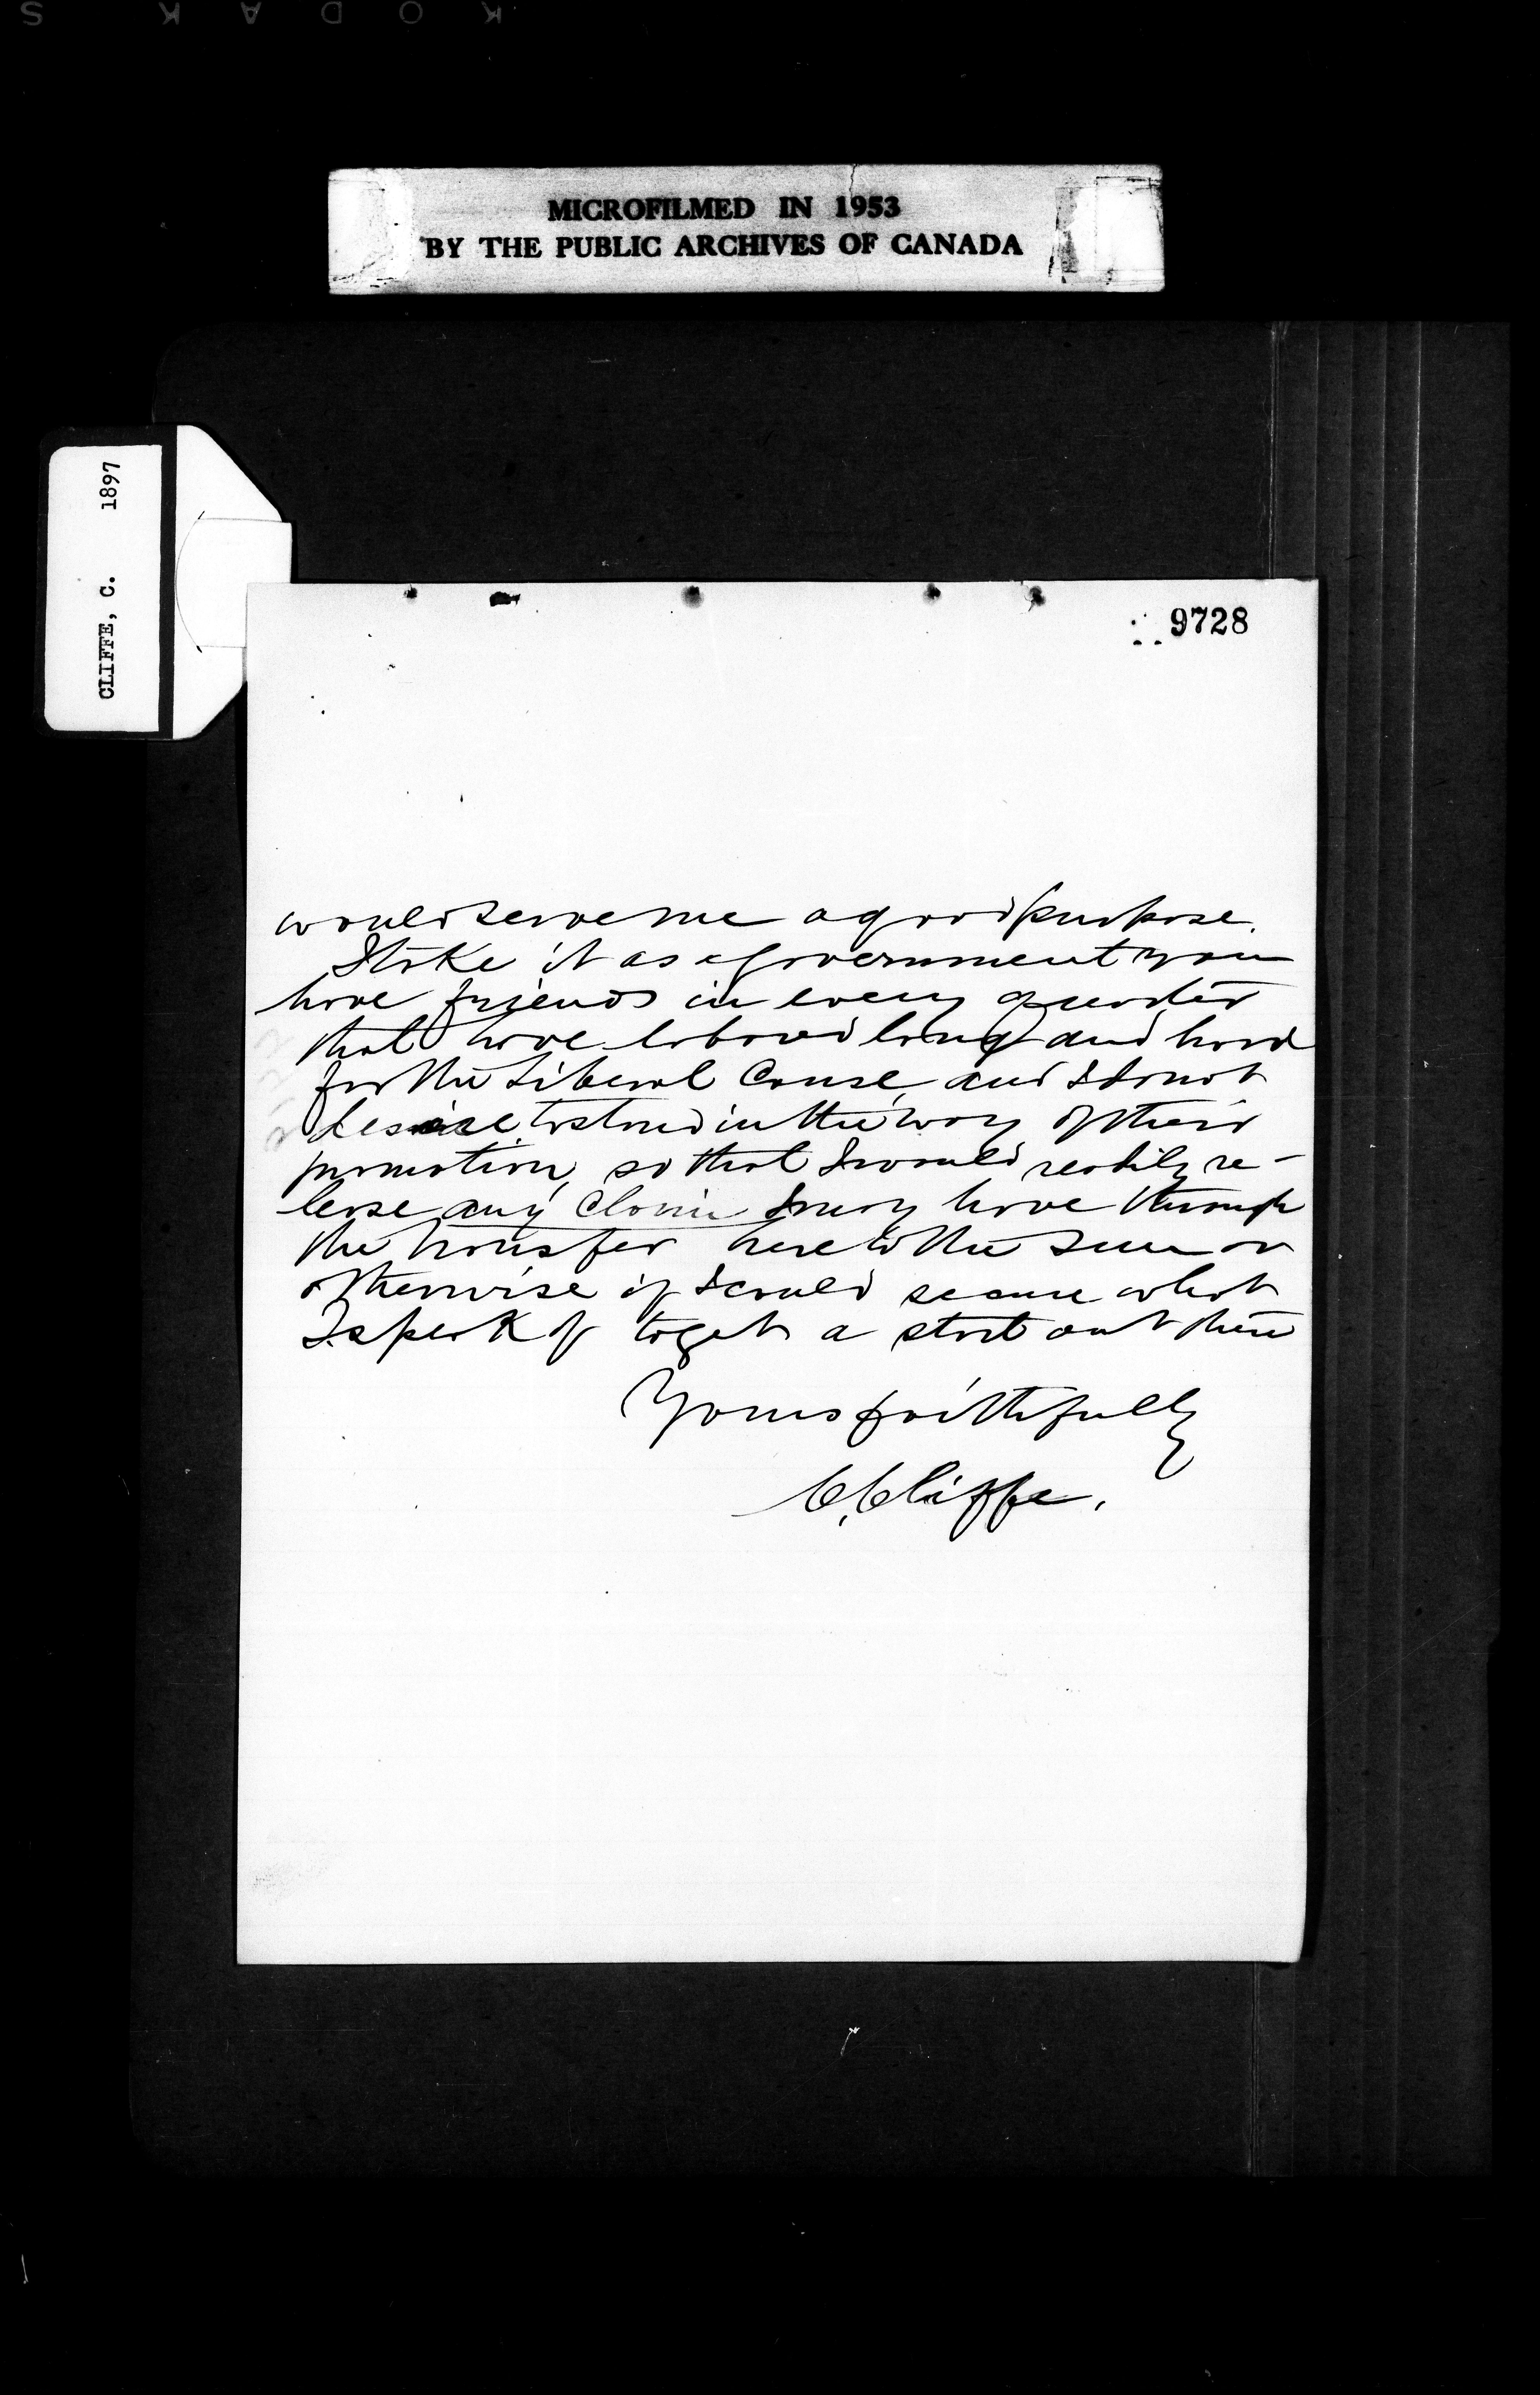 KODAK S
MICROFILMED IN 1953
BY THE PUBLIC ARCHIVES OF CANADA
CLIFFE, C. 1897
9728
would serve me a good purpose.
I take it as a government you
have friends in every quarter
that have labored long and hard
for the Liberal Cause, and I do not
desire to stand in the way of their
promotion, so that I would readily re-
lease any claim I may have through
the transfer here to the Sun or
otherwise if I could secure what
I speak of to get a start out there
Yours faithfully
C. Cliffe.